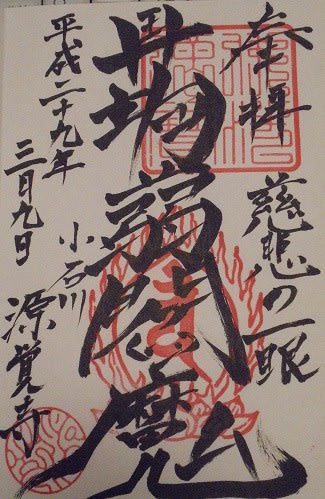 奉拝
慈悲の一眼
蒟蒻閻魔
小石川
源覚寺
平成二十九年
三月九日